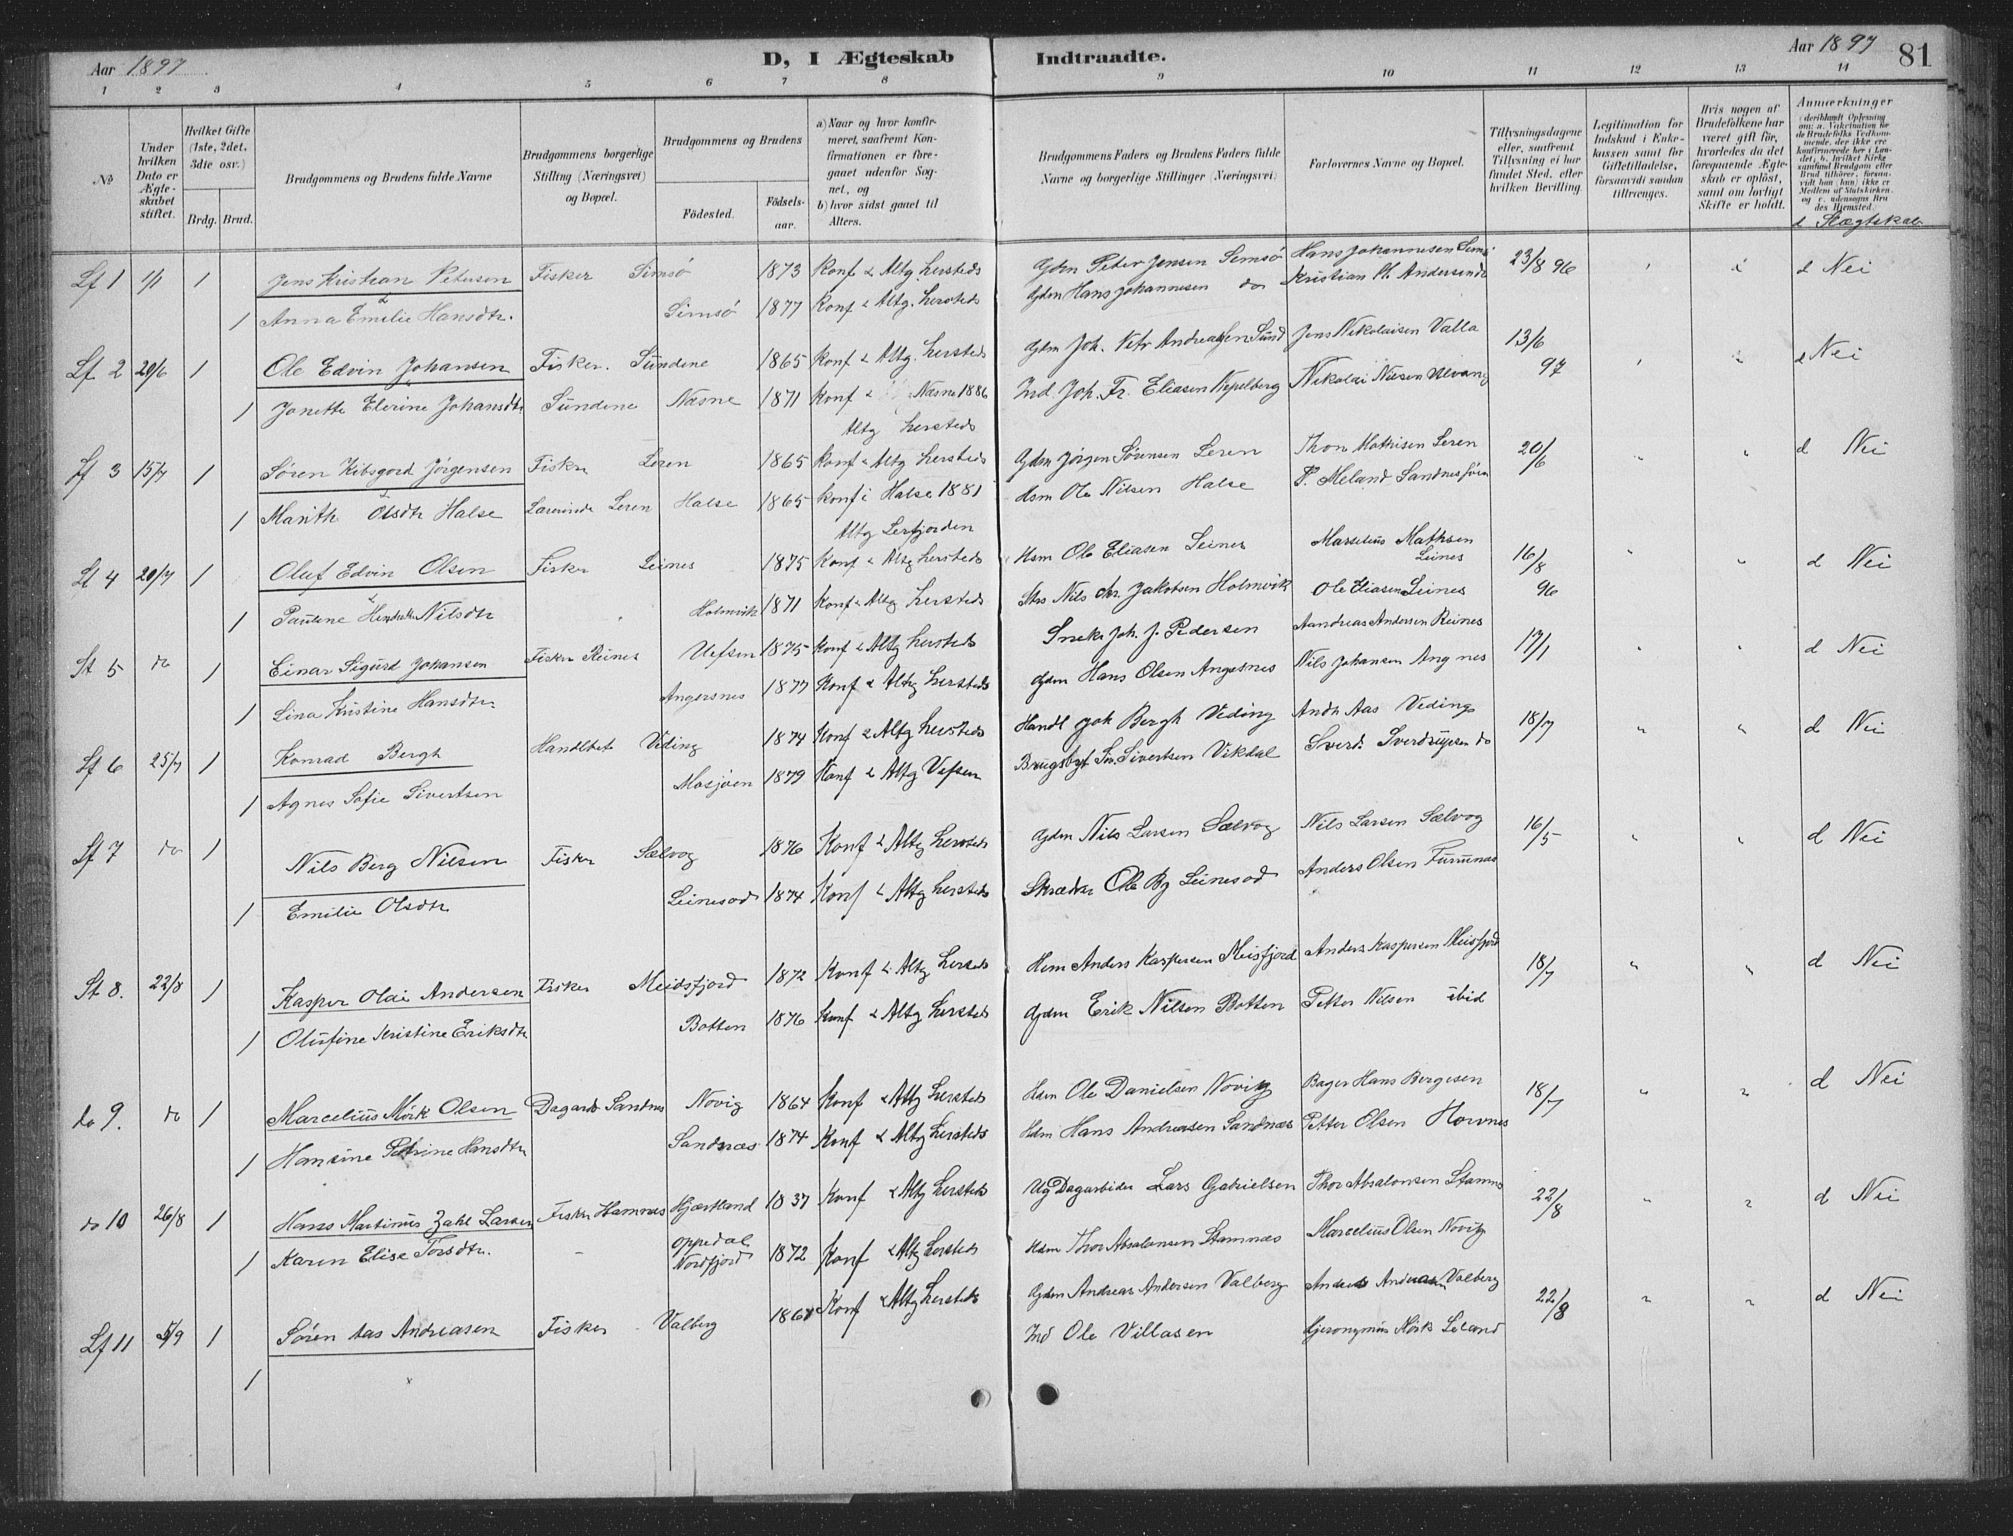 Aar 1897
D, I Ægteskab Indtraadte.
Aar 1897 81
1 2 3 4 5 6 7 8 9 10 11 12 13 14
No
Under hvilken Dato er Ægteskabet stiftet.
Hvilket Gifte (1ste, 2det, 3die osv.)
Brdg. Brud.
Brudgommens og Brudens fulde Navne
Brudgommens borgerlige Stilling (Næringsvei) og Bopæl.
Brudgommens og Brudens
Fødested. Fødselsaar.
a) Naar og hvor konfirmeret, saafremt Konfirmationen er foregaaet udenfor Sognet, og
b) hvor sidst gaaet til Alters.
Brudgommens Faders og Brudens Faders fulde Navne og borgerlige Stillinger (Næringsvei)
Forlovernes Navne og Bopæl.
Tillysningsdagene eller, saafremt Tillysning ei har fundet Sted, efter hvilken Bevilling.
Legitimation for Indskud i Enkekassen samt for Giftetilladelse, forsaavidt saadan tiltrænges.
Hvis nogen af Brudefolkene har været gift før, hvorledes da det foregaaende Ægteskab er opløst, samt om lovligt Skifte er holdt.
Anmærkninger
d Slægtskab
Lf 1 1/1 1 Jens Kristian Petersen Fisker Simsø 1873 Konf & Altg hersteds Gdm Peter Jensen Semsø Hans Johannesen 23/8 96 d Nei
1 Anna Emilie Hansdtr. Simsø 1877 Konf & Altg. hersteds Gdm Hans Johannesen do Kristian Andersen do
Lf 2 20/6 1 Ole Edvin Johansen Fisker. Sundene 1865 Konf & Altg. hersteds Gdm Joh. Petr Jens Nikolaisen Valla 13/6 97 d Nei
1 Jonette Elerine Johansdtr Sundene Næsne 1871 Konf & Næsne 1886 Ind. Joh. Fr. Eliasen Nikolai Nilsen Ulvang
Altg hersteds
Lf 3 15/7 1 Søren Kibsgord Jørgensen Fisker Leren 1865 Konf & Altg hersteds Gdm Jørgen Sørensen Leren Thon Mathisen Leren 20/6 d Nei
1 Marith Olsdtr Halse Leren Halse 1865 konf i Halse 1881 Hsm Ole Nilsen Halse P. Meland Sandnessjøen
Altg Lerfjorden
Lf 4 20/7 1 Oluf Edvin Olsen Fisker Leines 1875 Konf & Altg hersteds Hsm Ole Eliasen Leines Marselius Mathsen Leines 16/8 96 d Nei
1 Pauline Nilsdtr Holmvik 1871 Konf & Altg hersteds Nils Chr Jakobsen Holmvik Ole Eliasen Leines
St 5 do 1 Einar Sigurd Johansen Fisker Reines Vefsen 1875 Konf & Altg hersteds Snekr Joh. J. Pedersen Aandreas Andersen Reines 17/1 d Nei
1 Lina Kristine Hansdtr. Angersnes 1877 Konf & Altg hersteds Gdm Hans Olsen Angersnes Nils Johansen
Lf 6 25/7 1 Konrad Bergh Handlbet Viding 1874 Konf & Altg hersteds Handl Joh Bergh Viding Andr Aas Viding 18/7 d Nei
1 Agnes Sofie Sivertsen Mosjøen 1879 Konf & Altg Vefsen Brugsbgt Sivertsen Vikdal Sverdrupsen do
Lf 7 do 1 Nils Berg Nilsen Fisker Sælvog 1876 Konf & Altg hersteds Gdm Nils Larsen Sælvog Nils Larsen Sælvog 16/5 d Nei
1 Emilie Olsdtr Leinesod 1874 Konf & Altg hersteds Skrædr Ole Leinesod Anders Olsen
St 8. 22/8 1 Kasper Oldi Andersen Fisker Meidsfjord 1872 Konf & Altg hersteds Hsm Anders Kaspersen Meisfjord Anders Kaspersen Meisfjord 18/7 d Nei
1 Olufine Kristine Eriksdtr Botten 1876 Konf & Altg hersteds Gdm Erik Nilsen Botten Petter Nilsen ibid
do 9. do 1 Marcelius Mörk Olsen Dagarb Sandnes Novig 1864 Konf & Altg hersteds Hsm Ole Danielsen Novig Bager Hans Bergesen 18/7 d Nei
1 Hansine Petrine Hansdtr Sandnæs 1874 Konf & Altg hersteds Hsm Hans Andreasen Sandnæs Petter Olsen Hovnes
do 10 26/8 1 Hans Martinus Zahl Larsen Fisker Hamnes Hjærtland 1837 Konf & Altg hersteds Ug Dagarbider Lars Gabrielsen Thor Absalonsen Stamnes 22/8 d Nei
1 Karen Elise Torsdtr. Oppedal Nordfjord 1872 Konf & Altg hersteds Hsm Thor Absalonsen Stamnæs Marcelius Olsen Novig
Lf 11 5/9 1 Sören Aas Andreasen Fisker Valberg Konf & Altg hersteds Gdm Andreas Andersen Valberg Valberg 22/8 d Nei
1 Ind Ole Villasen Hjeronymus Mörk Leland